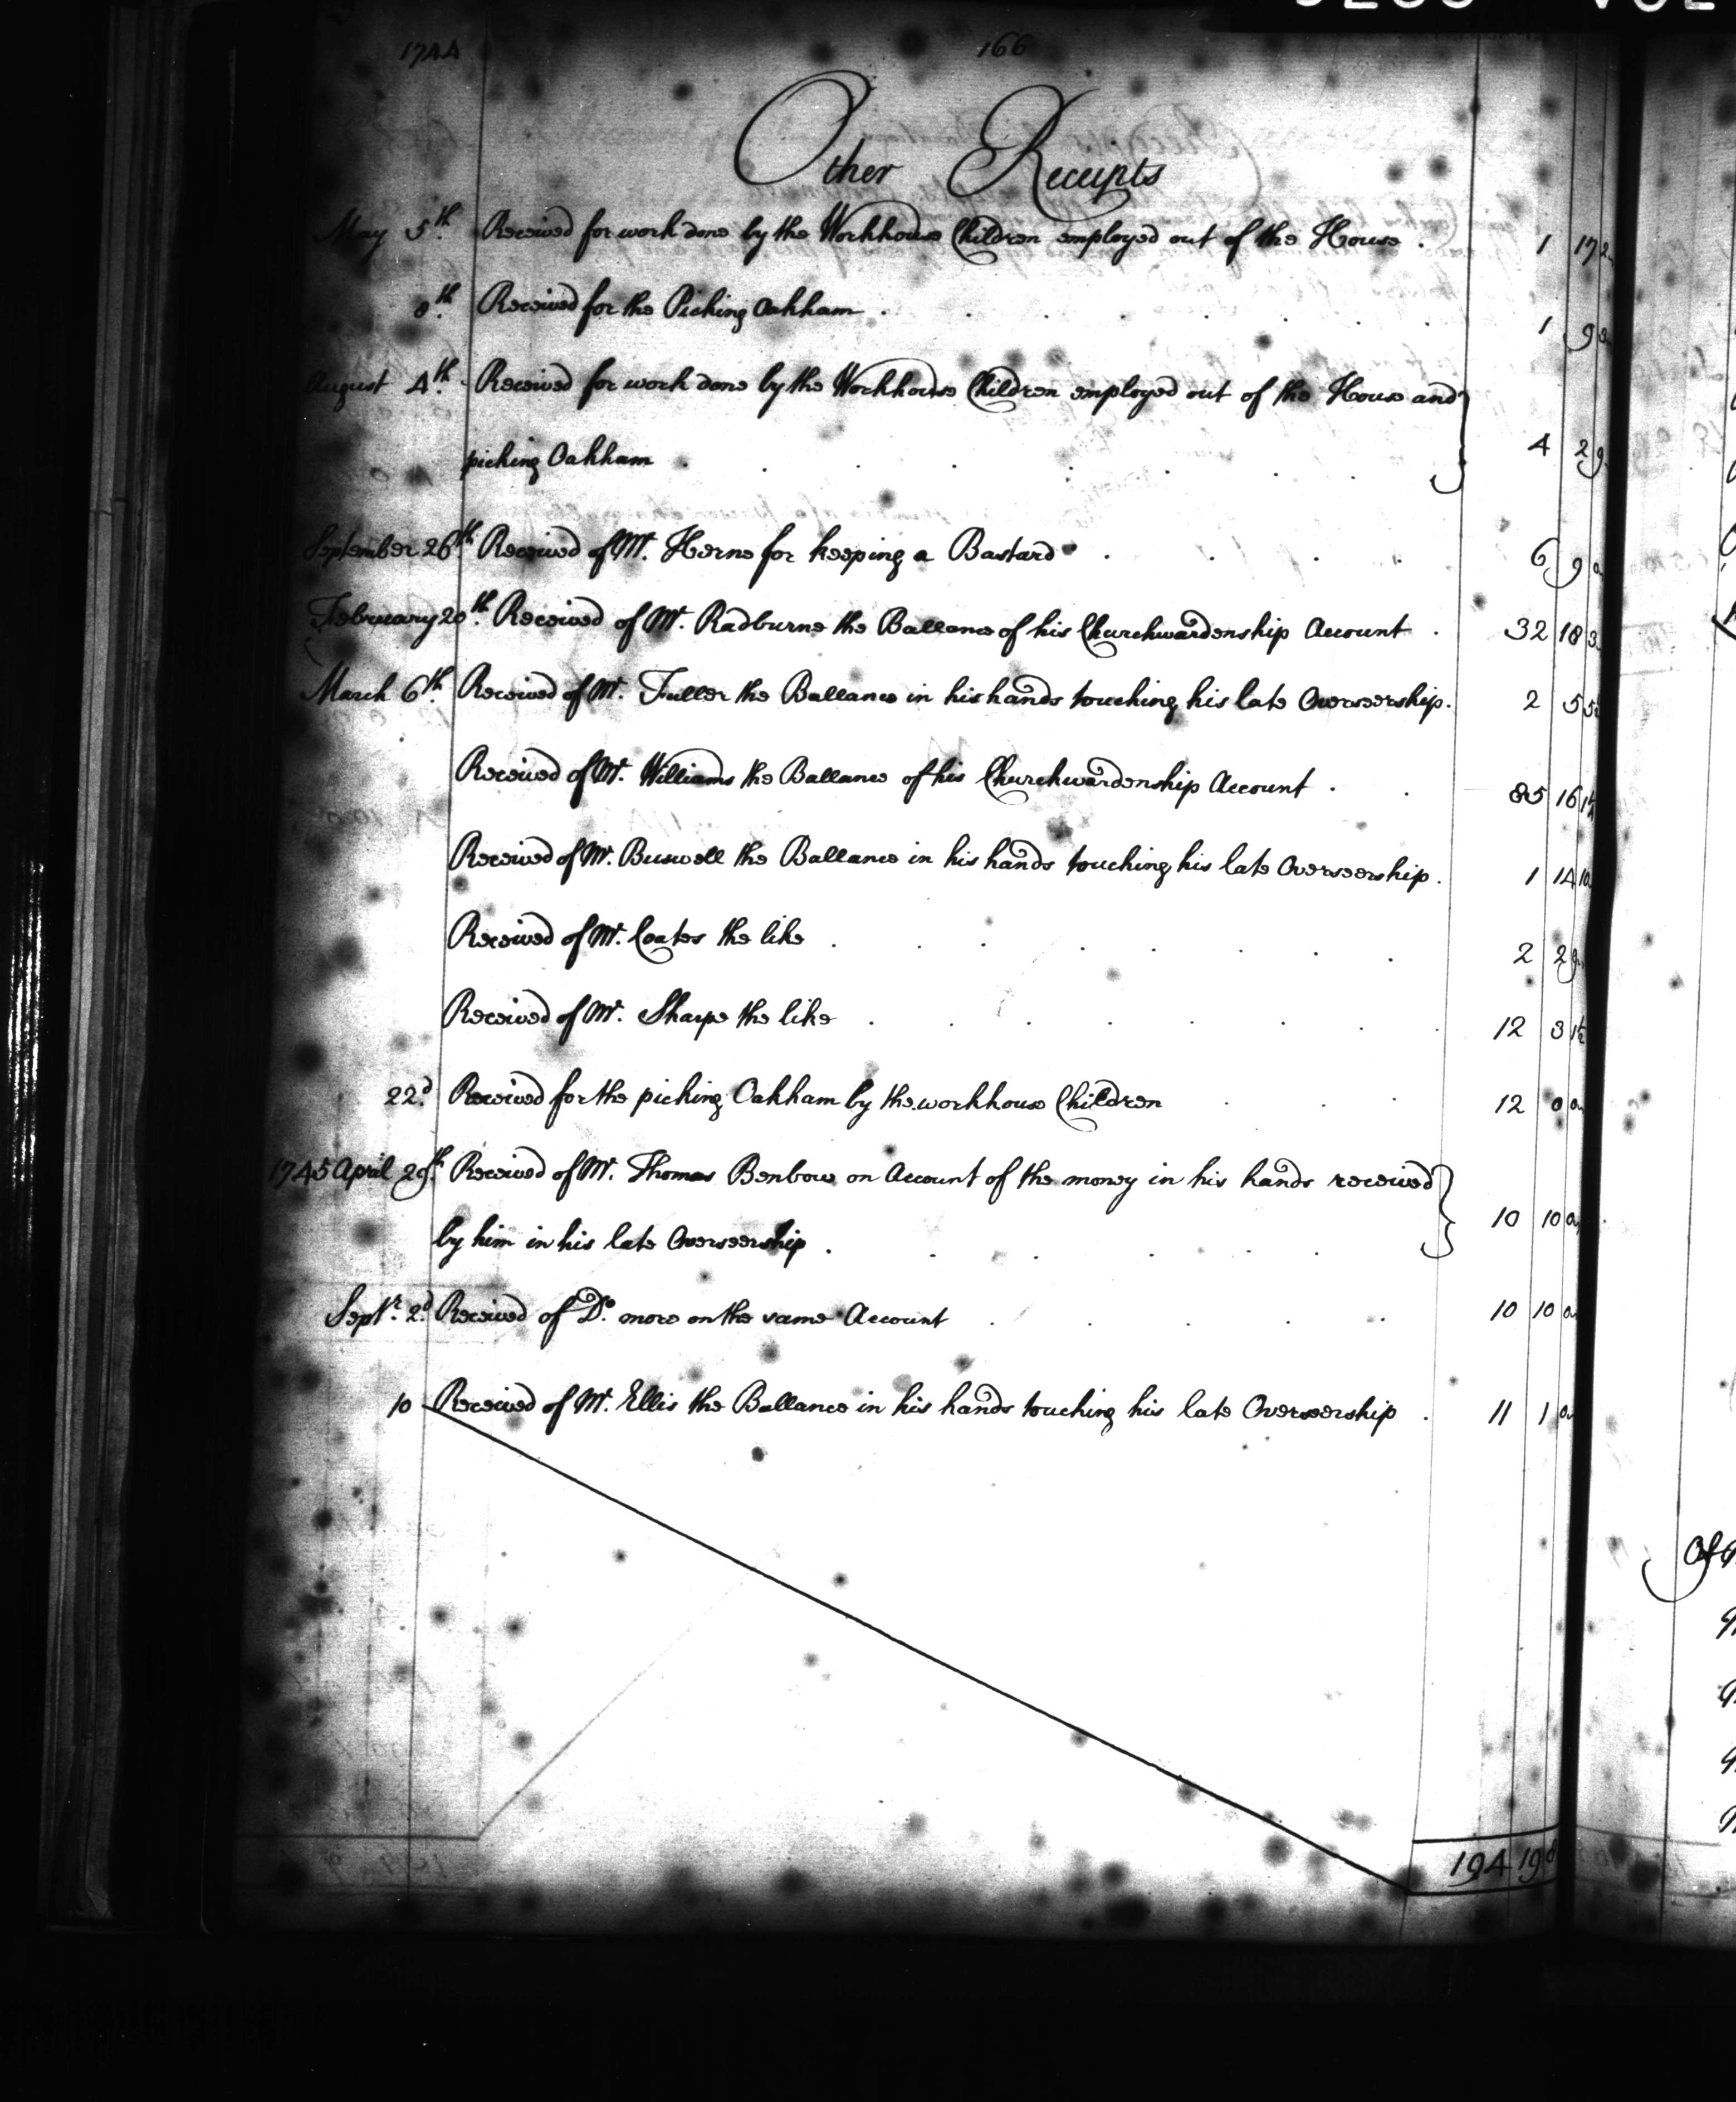 1744 166
Other Receipts
May 5th. Received for work done by the Workhouse Children employed out of the House . 1 17 2
8th. Received for the Picking Oakham . 1 9
August 4th. Received for work done by the Workhouse Children employed out of the House and
picking Oakham . 4 2 9
September 26th. Received of Mr. Herne for keeping a Bastard . 6 9 0
February 20th. Received of Mr. Radburne the Ballance of his Churchwardenship Account . 32 18 3
March 6th. Received of Mr. Fuller the Ballance in his hands touching his late Overseership. 2 5
Received of Mr. Williams the Ballance of his Churchwardenship Account . 85 16
Received of Mr. Buswell the Ballance in his hands touching his late Overseership. 1 14 10
Received of Mr. Coates the like . 2 2
Received of Mr. Sharpe the like . 12 3 1½
22d. Received for the picking Oakham by the workhouse Children . 12 0 0
1745 April 29th. Received of Mr. Thomas Benbow on Account of the money in his hands received
by him in his late Overseership . 10 10 0
Septr. 2d. Received of Do. more on the same Account . 10 10 0
10 Received of Mr. Ellis the Ballance in his hands touching his late Overseership . 11 1 0
194 19